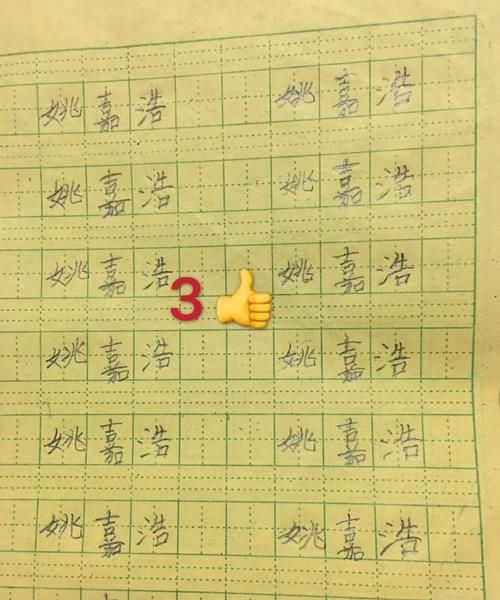 姚嘉浩 姚嘉浩
姚嘉浩 姚嘉浩
姚嘉浩 姚嘉浩
3
姚嘉浩 姚嘉浩
姚嘉浩 姚嘉浩
姚嘉浩 姚嘉浩